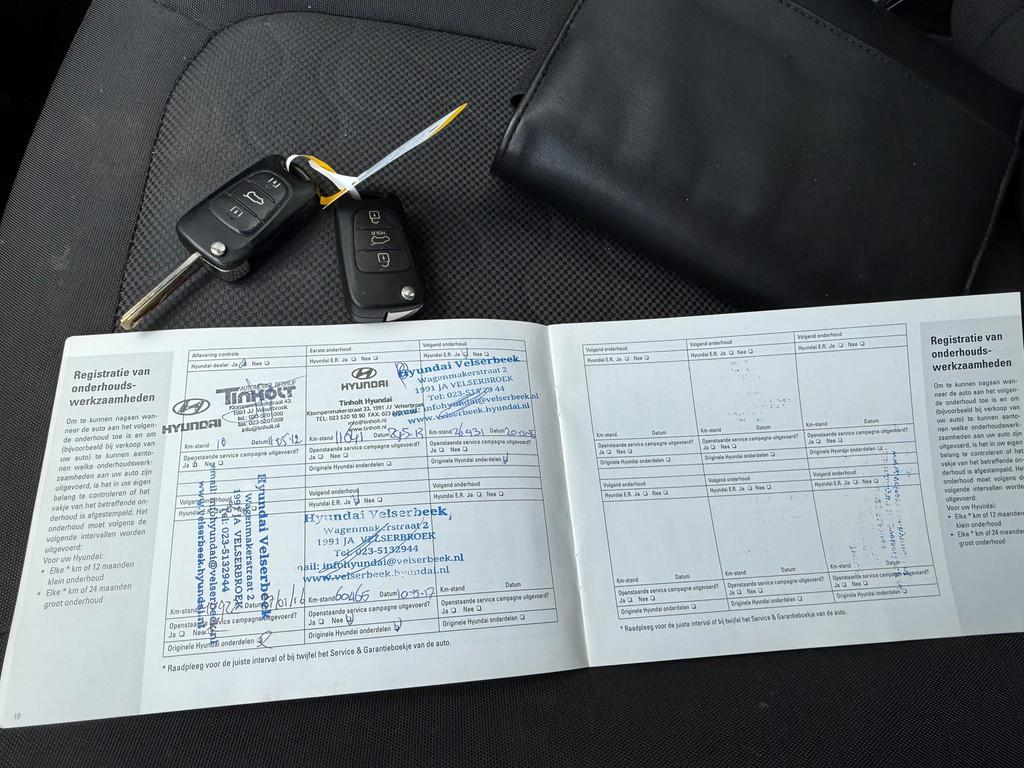 HOLD
Registratie van
onderhouds-
werkzaamheden
Om te kunnen nagaan wan-
neer de auto aan het volgen-
de onderhoud toe is en om
(bijvoorbeeld bij verkoop van
uw auto) te kunnen aanto-
nen welke onderhoudswerk-
zaamheden aan uw auto zijn
uitgevoerd, is het in uw eigen
belang te controleren of het
vakje van het betreffende on-
derhoud is afgestempeld. Het
onderhoud moet volgens de
volgende intervallen worden
uitgevoerd:
Voor uw Hyundai:
• Elke * km of 12 maanden
klein onderhoud
• Elke * km of 24 maanden
groot onderhoud
10
Aflevering controle
Hyundai dealer Ja Nee
HYUNDAI
AUTOMOBIELBEDRIJF
TINHOLT
1991 JJ Velserbroek
info@tinholt.nl
Km-stand 10 Datum
Openstaande service campagne uitgevoerd?
Ja Nee
Eerste onderhoud
Hyundai E.R. Ja Nee
HYUNDAI
Tinholt Hyundai
Klompenmakerstraat 33, 1991 JJ Velserbroek
info@tinholt.nl
www.tinholt.nl
Km-stand 11041 Datum
Openstaande service campagne uitgevoerd?
Ja Nee
Originele Hyundai onderdelen
Volgend onderhoud
Hyundai E.R. Ja Nee
Hyundai Velserbeek
Wagenmakerstraat 2
1991 JA VELSERBROEK
Tel: 023-5132944
email: infohyundai@velserbeek.nl
www.velserbeek.hyundai.nl
Km-stand 26931 Datum
Openstaande service campagne uitgevoerd?
Ja Nee
Originele Hyundai onderdelen
Volgend onderhoud
Hyundai Velserbeek
Wagenmakerstraat 2
1991 JA VELSERBROEK
Tel: 023-5132944
email: infohyundai@velserbeek.nl
www.velserbeek.hyundai.nl
Km-stand
Openstaande service campagne uitgevoerd?
Ja Nee
Originele Hyundai onderdelen
Volgend onderhoud
Hyundai E.R. Ja Nee
Hyundai Velserbeek
Wagenmakerstraat 2
1991 JA VELSERBROEK
Tel: 023-5132944
email: infohyundai@velserbeek.nl
www.velserbeek.hyundai.nl
Km-stand 60465 Datum 10-5-17
Openstaande service campagne uitgevoerd?
Ja Nee
Originele Hyundai onderdelen
Volgend onderhoud
Hyundai E.R. Ja Nee
Km-stand Datum
Openstaande service campagne uitgevoerd?
Ja Nee
Originele Hyundai onderdelen
* Raadpleeg voor de juiste interval of bij twijfel het Service & Garantieboekje van de auto.
Volgend onderhoud
Hyundai E.R. Ja Nee
Km-stand Datum
Openstaande service campagne uitgevoerd?
Ja Nee
Originele Hyundai onderdelen
Volgend onderhoud
Hyundai E.R. Ja Nee
Km-stand Datum
Openstaande service campagne uitgevoerd?
Ja Nee
Originele Hyundai onderdelen
Volgend onderhoud
Hyundai E.R. Ja Nee
Km-stand Datum
Openstaande service campagne uitgevoerd?
Ja Nee
Originele Hyundai onderdelen
Volgend onderhoud
Hyundai E.R. Ja Nee
Km-stand Datum
Openstaande service campagne uitgevoerd?
Ja Nee
Originele Hyundai onderdelen
Volgend onderhoud
Hyundai E.R. Ja Nee
Km-stand Datum
Openstaande service campagne uitgevoerd?
Ja Nee
Originele Hyundai onderdelen
Volgend onderhoud
Hyundai E.R. Ja Nee
Km-stand Datum
Openstaande service campagne uitgevoerd?
Ja Nee
Originele Hyundai onderdelen
* Raadpleeg voor de juiste interval of bij twijfel het Service & Garantieboekje van de auto.
Registratie van
onderhouds-
werkzaamheden
Om te kunnen nagaan wan-
neer de auto aan het volgen-
de onderhoud toe is en om
(bijvoorbeeld bij verkoop van
uw auto) te kunnen aanto-
nen welke onderhoudswerk-
zaamheden aan uw auto zijn
uitgevoerd, is het in uw eigen
belang te controleren of het
vakje van het betreffende on-
derhoud is afgestempeld. Het
onderhoud moet volgens de
volgende intervallen worden
uitgevoerd:
Voor uw Hyundai:
• Elke * km of 12 maanden
klein onderhoud
• Elke * km of 24 maanden
groot onderhoud